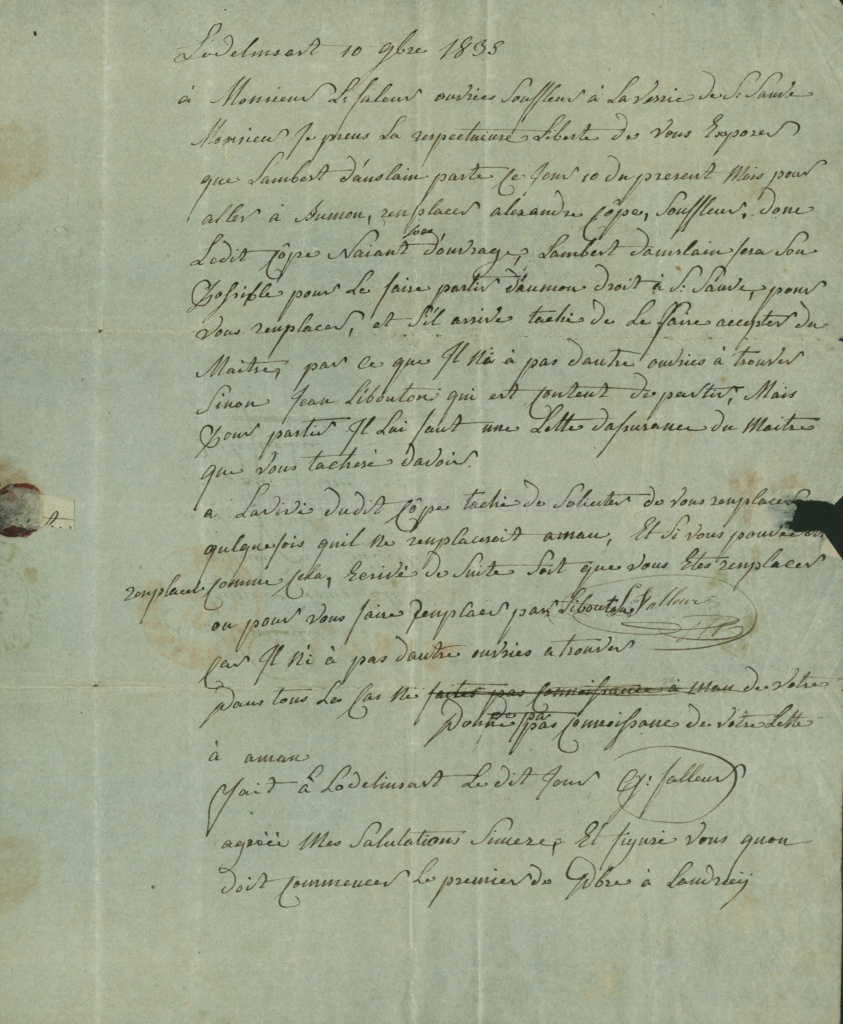 Lodelinsart 10 9bre 1835
à Monsieur L: falleur ouvries Souffleur à La Verrie de St: Sauve
Monsieur Je prens La respectueuse Liberté de vous Exposer
que Lambert d'auslain parte Ce Jour 10 du present Mois pour
aller à Aumon, renplacer alexandre Côpe, Souffleur, donc
Ledit Côpe N'aiant d'ouvrage, Lambert d'amslain fera Son
Possible pour Le faire partir d'aumon droit à St: Sauve, pour
vous renplacer, et S'il arrive taché de Le faire accepter du
Maitre, par ce que Jl Ni à pas d'autre ouvries à trouver
Sinon Jean Libouton qui est Content de partir, Mais
Pour partir Jl Lui faut une Lette d'assurance du Maitre
que vous tacheré d'avoir.
a Larivé dudit Côpe taché de Soliciter de vous renplacer
quelquefois qu'il Ne renplaceroit aman, Et Si vous pouvée
renplacer Comme Cela, Ecrivé de Suite Soit que vous Etes renplacer
ou pour vous faire renplacer par Libouton L: falleur
Car Jl Ni à pas d'autre ouvries a trouver
Dans tous Les Cas Ne faites pas Connoissance à man de votre
Donné pas Connoissance de votre Lette
à aman
fait à Lodelinsart Le dit Jour G: falleur
agréée Mes Salutations Sincere, Et figuré vous qu'on
doit Commencer Le premier de Xbre à Landrecij